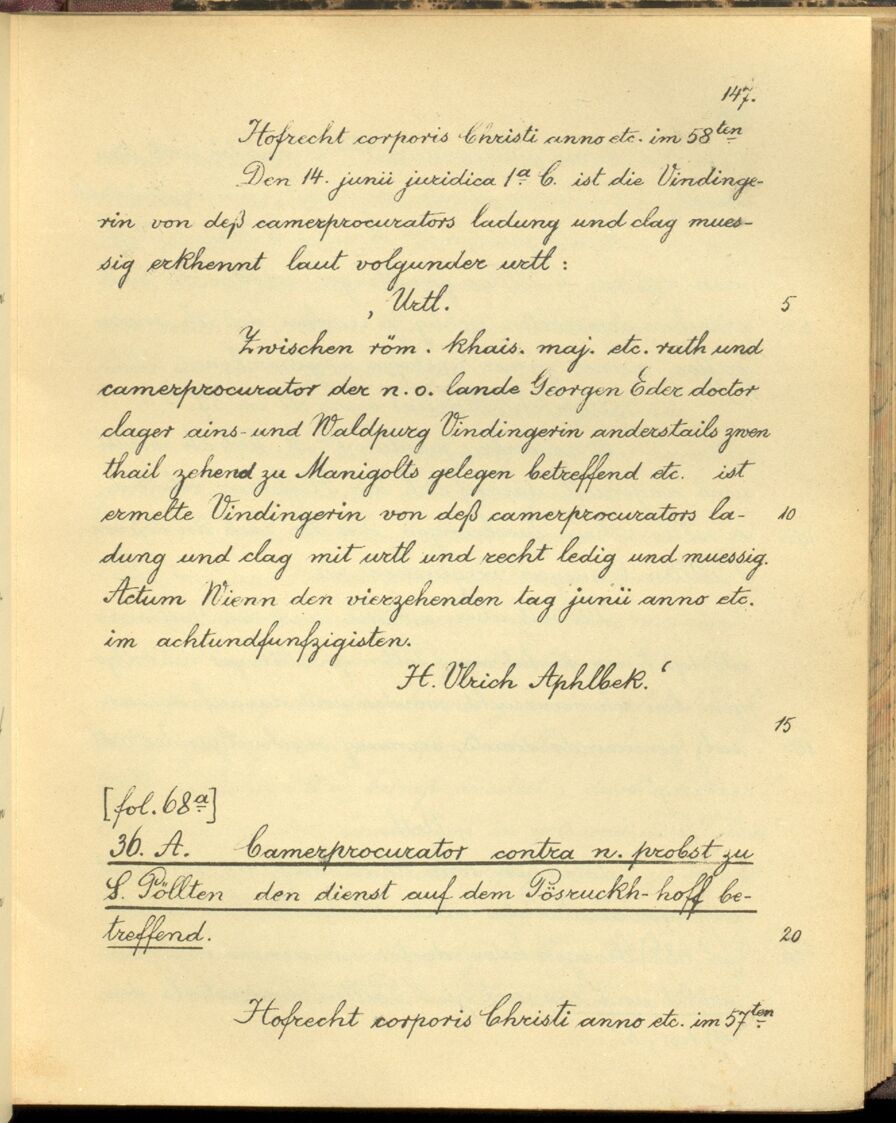 147.
Hofrecht corporis Christi anno etc. im 58ten
Den 14. junii juridica 1a C. ist die Vindinge-
rin von deß camerprocurators ladung und clag mues-
sig erkhennt laut volgunder urtl :
‚ Urtl. 5
Zwischen röm. khais. maj. etc. rath und
camerprocurator der n. o. lande Georgen Eder doctor
clager ains- und Waldpurg Vindingerin anderstails zwen
thail zehend zu Manigolts gelegen betreffend etc. ist
ermelte Vindingerin von deß camerprocurators la- 10
dung und clag mit urtl und recht ledig und muessig.
Actum Wienn den vierzehenden tag junii anno etc.
im achtundfunfzigisten.
H. Ulrich Aphlbek.‘
15
[fol. 68a]
36. A. Camerprocurator contra n. probst zu
S. Pöllten den dienst auf dem Pösruckh-hoff be-
treffend. 20
Hofrecht corporis Christi anno etc. im 57ten